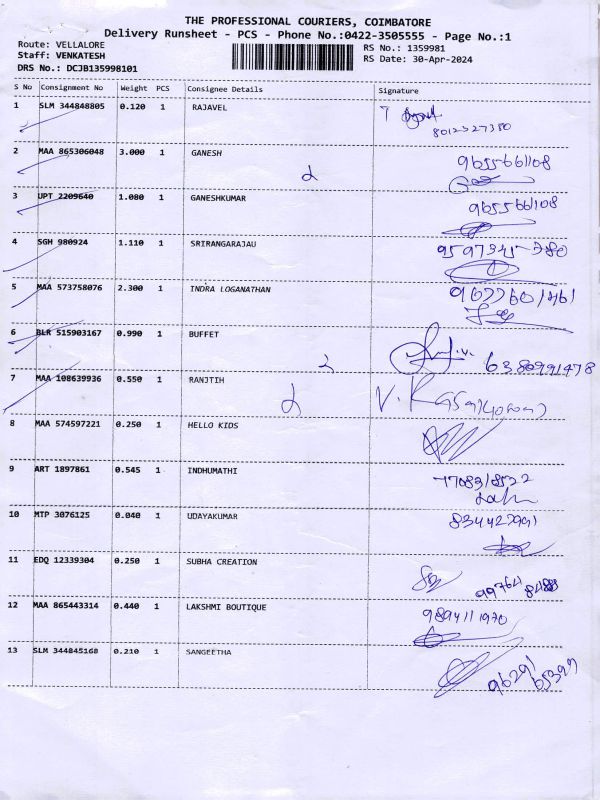 THE PROFESSIONAL COURIERS, COIMBATORE
Delivery Runsheet - PCS - Phone No.:0422-3505555 - Page No.:1
Route: VELLALORE
RS No.: 1359981
Staff: VENKATESH
RS Date: 30-Apr-2024
DRS No.: DCJB135998101
S No Consignment No Weight PCS Consignee Details Signature
1 SLM 344848805 0.120 1 RAJAVEL
2 MAA 865306048 3.000 1 GANESH 9655661108
3 UPT 2209640 1.080 1 GANESHKUMAR 9655661108
4 SGH 980924 1.110 1 SRIRANGARAJAU
5 MAA 573758076 2.300 1 INDRA LOGANATHAN
6 BLR 515903167 0.990 1 BUFFET 6380991478
7 MAA 108639936 0.550 1 RANJTIH
8 MAA 574597221 0.250 1 HELLO KIDS
9 ART 1897861 0.545 1 INDHUMATHI
10 MTP 3076125 0.040 1 UDAYAKUMAR
11 EDQ 12339304 0.250 1 SUBHA CREATION
12 MAA 865443314 0.440 1 LAKSHMI BOUTIQUE 9894111970
13 SLM 344845168 0.210 1 SANGEETHA